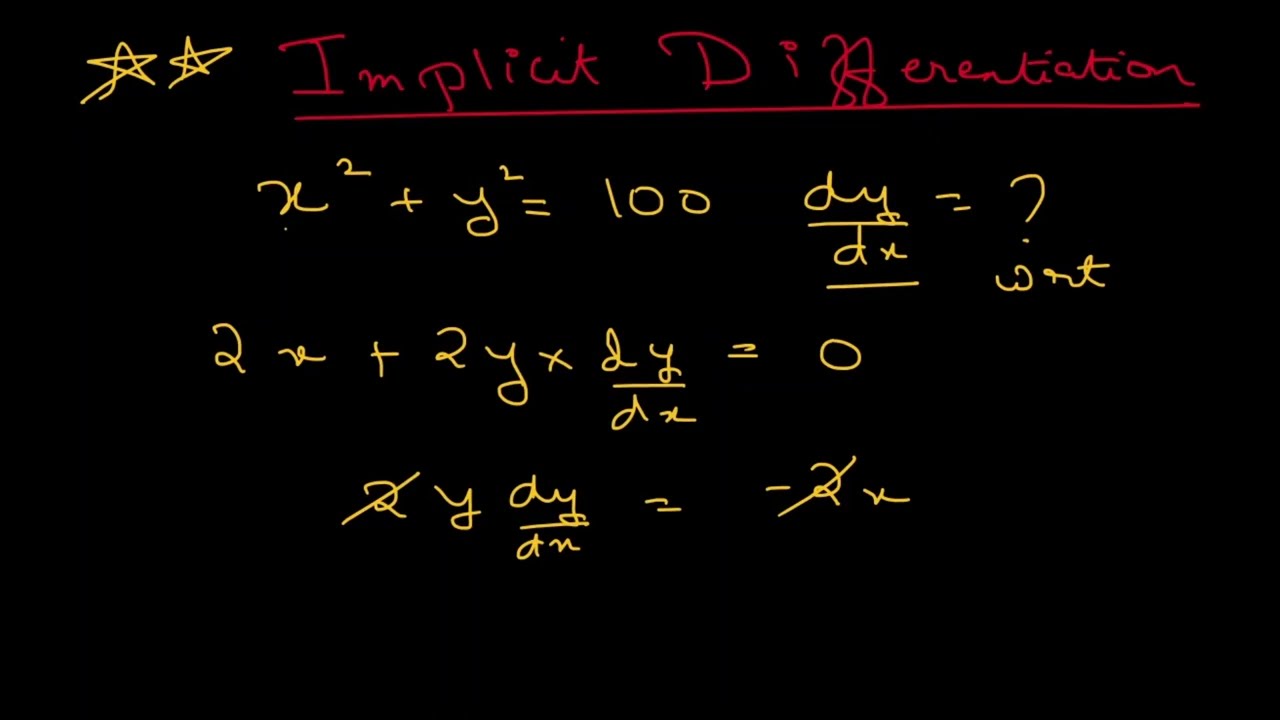 Implicit Differentiation
x² + y² = 100 dy/dx = ?
wrt
2x + 2y × dy/dx = 0
2y dy/dx = -2x